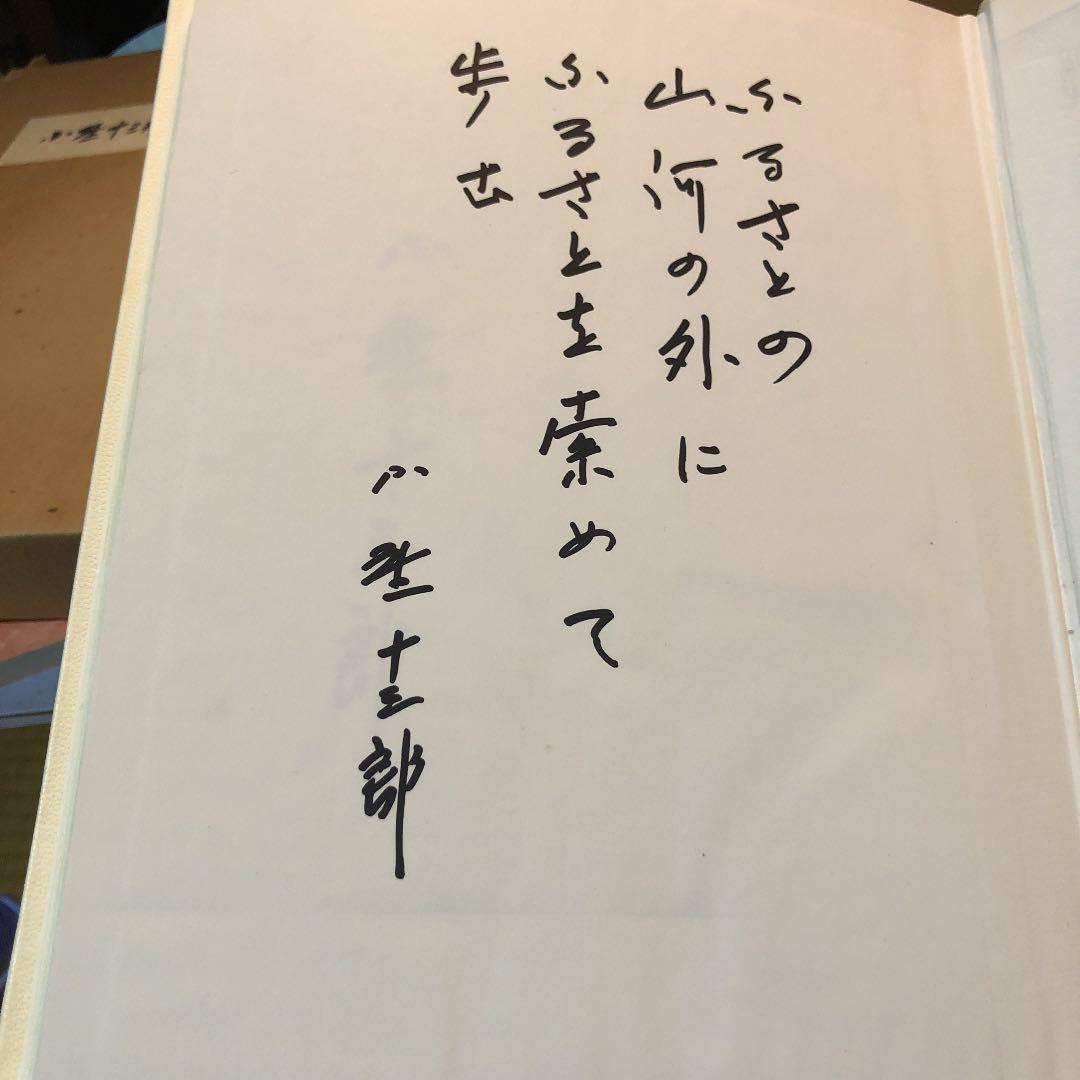 ふるさとの
山河の外に
ふるさとを索めて
歩む
小野十三郎
小野十三